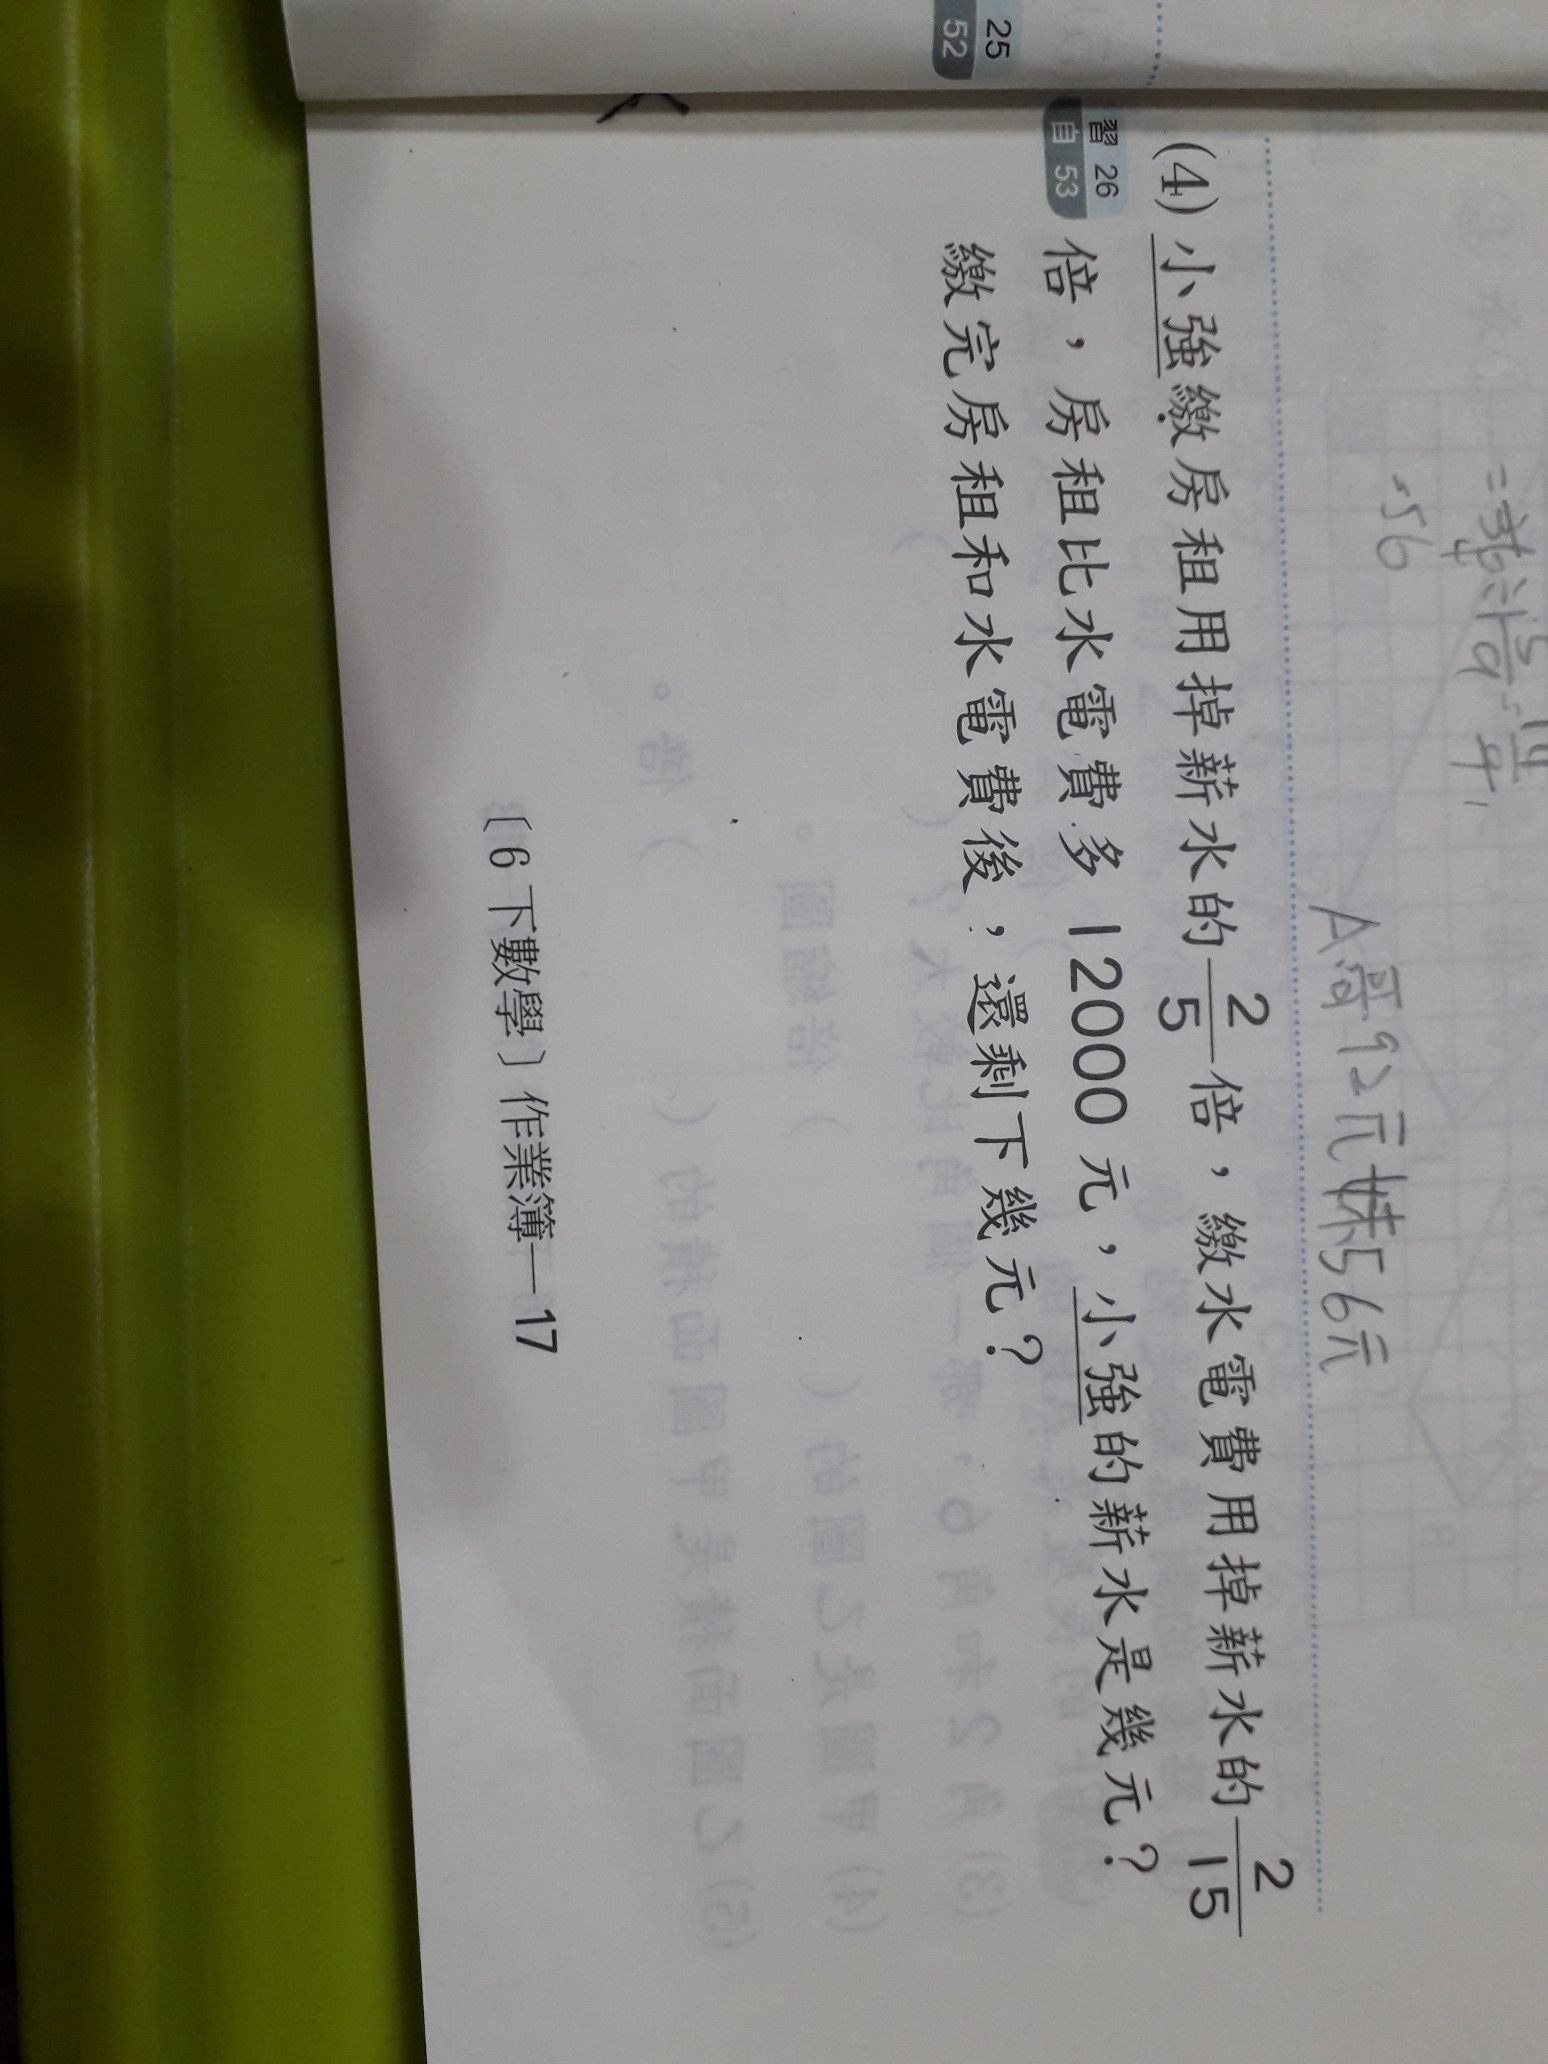 25
52
A哥92元妹56元
=56
習 26
自 53
(4) 小強繳房租用掉薪水的 2/5 倍，繳水電費用掉薪水的 2/15
倍，房租比水電費多 12000 元，小強的薪水是幾元？
繳完房租和水電費後，還剩下幾元？
〔6下數學〕作業簿—17